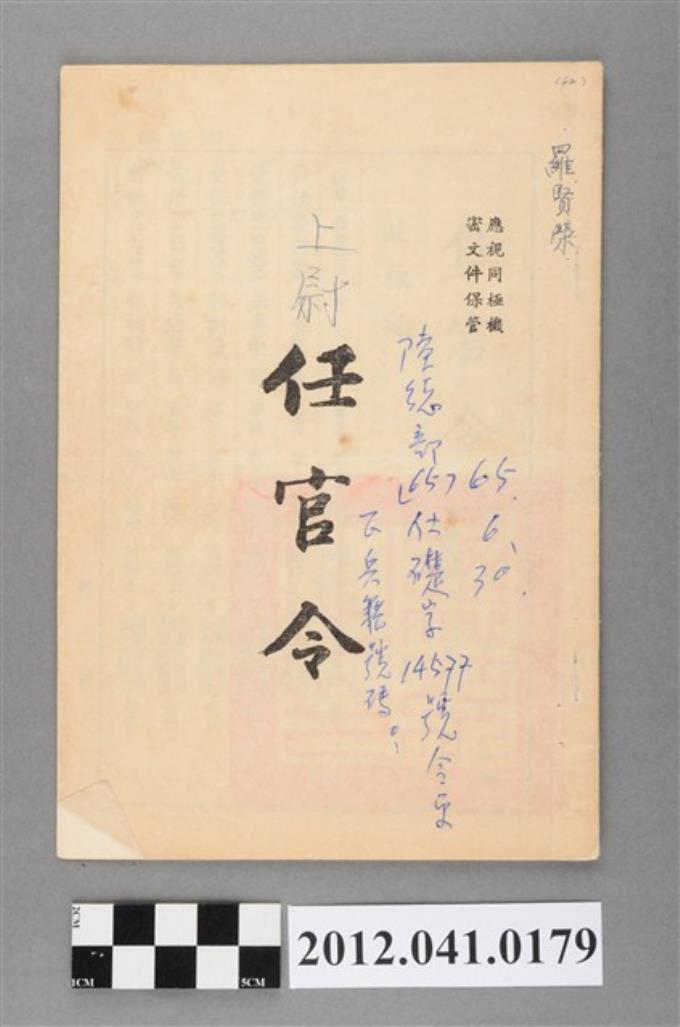 (62)
羅賢榮
應視同極機
密文件保管
65.6.30.
陸總部(65)仕礎字14577號令更
正兵籍號碼。
上尉
任官令
2CM
1CM
5CM
2012.041.0179